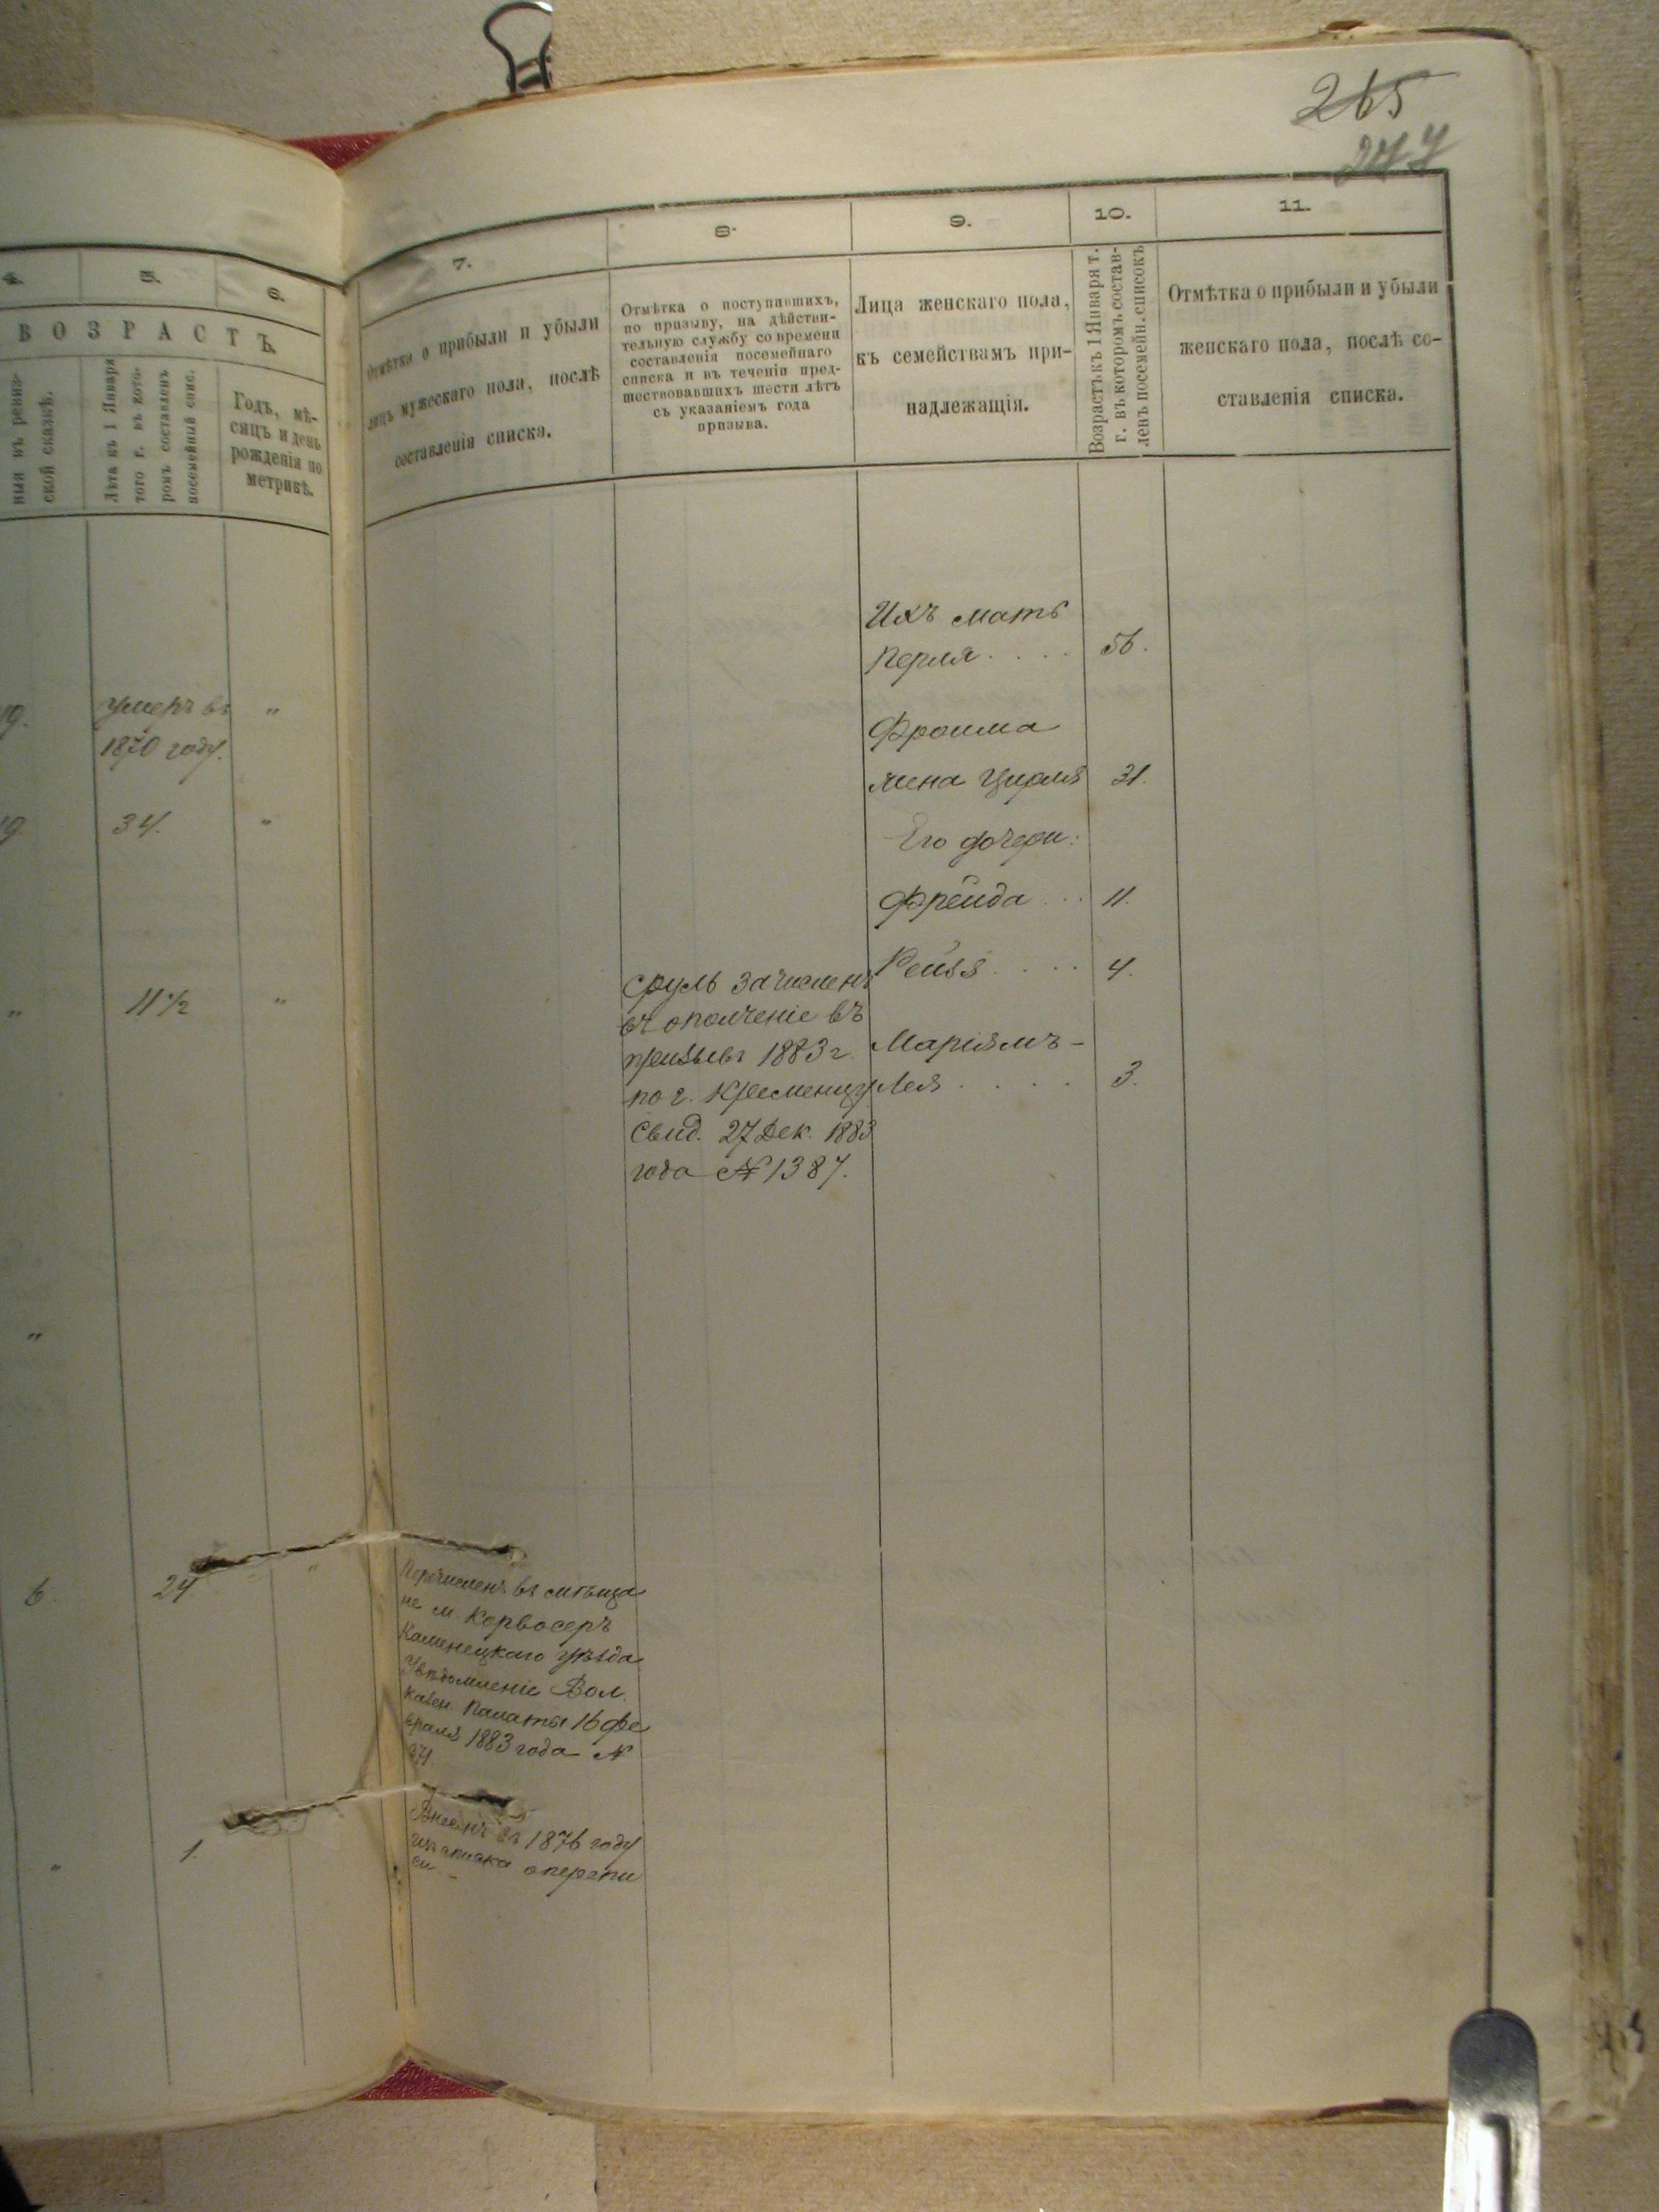 265
277
4.
5.
6.
ВОЗРАСТЪ.
ной сказкѣ.
Лѣта къ 1 Января
того г. въ кото-
ромъ составленъ
посемейный спис.
Годъ, мѣ-
сяцъ и день
рожденія по
метрикѣ.
умеръ въ
1870 году.
"
34.
"
"
11 1/2
"
"
6.
24
"
"
1.
7.
8.
9.
10.
11.
Отмѣтка о прибыли и убыли
лицъ мужескаго пола, послѣ
составленія списка.
Отмѣтка о поступившихъ,
по призыву, на дѣйстви-
тельную службу со времени
составленія посемейнаго
списка и въ теченіи пред-
шествовавшихъ шести лѣтъ
съ указаніемъ года
призыва.
Лица женскаго пола,
къ семействамъ при-
надлежащія.
Возрастъ къ 1 Января т.
г. въ которомъ состав-
ленъ посемейн. списокъ
Отмѣтка о прибыли и убыли
женскаго пола, послѣ со-
ставленія списка.
Ихъ мать
Перля . . . . 56.
Фроима
жена Цирля 31.
Его дочери:
Фрейда . . . 11.
Рейзя . . . . 4.
Маріямъ-
Лея . . . . 3.
Сруль зачисленъ
въ ополченіе въ
призывъ 1883 г.
по г. Кременцу
Свид. 27 Дек. 1883
года № 1387.
Перечисленъ въ мѣща
не м. Корвосеръ
Каменецкаго уѣзда
Увѣдомленіе Вол.
Казен. Палаты 16 Фе
враля 1883 года №
Внесенъ въ 1876 году